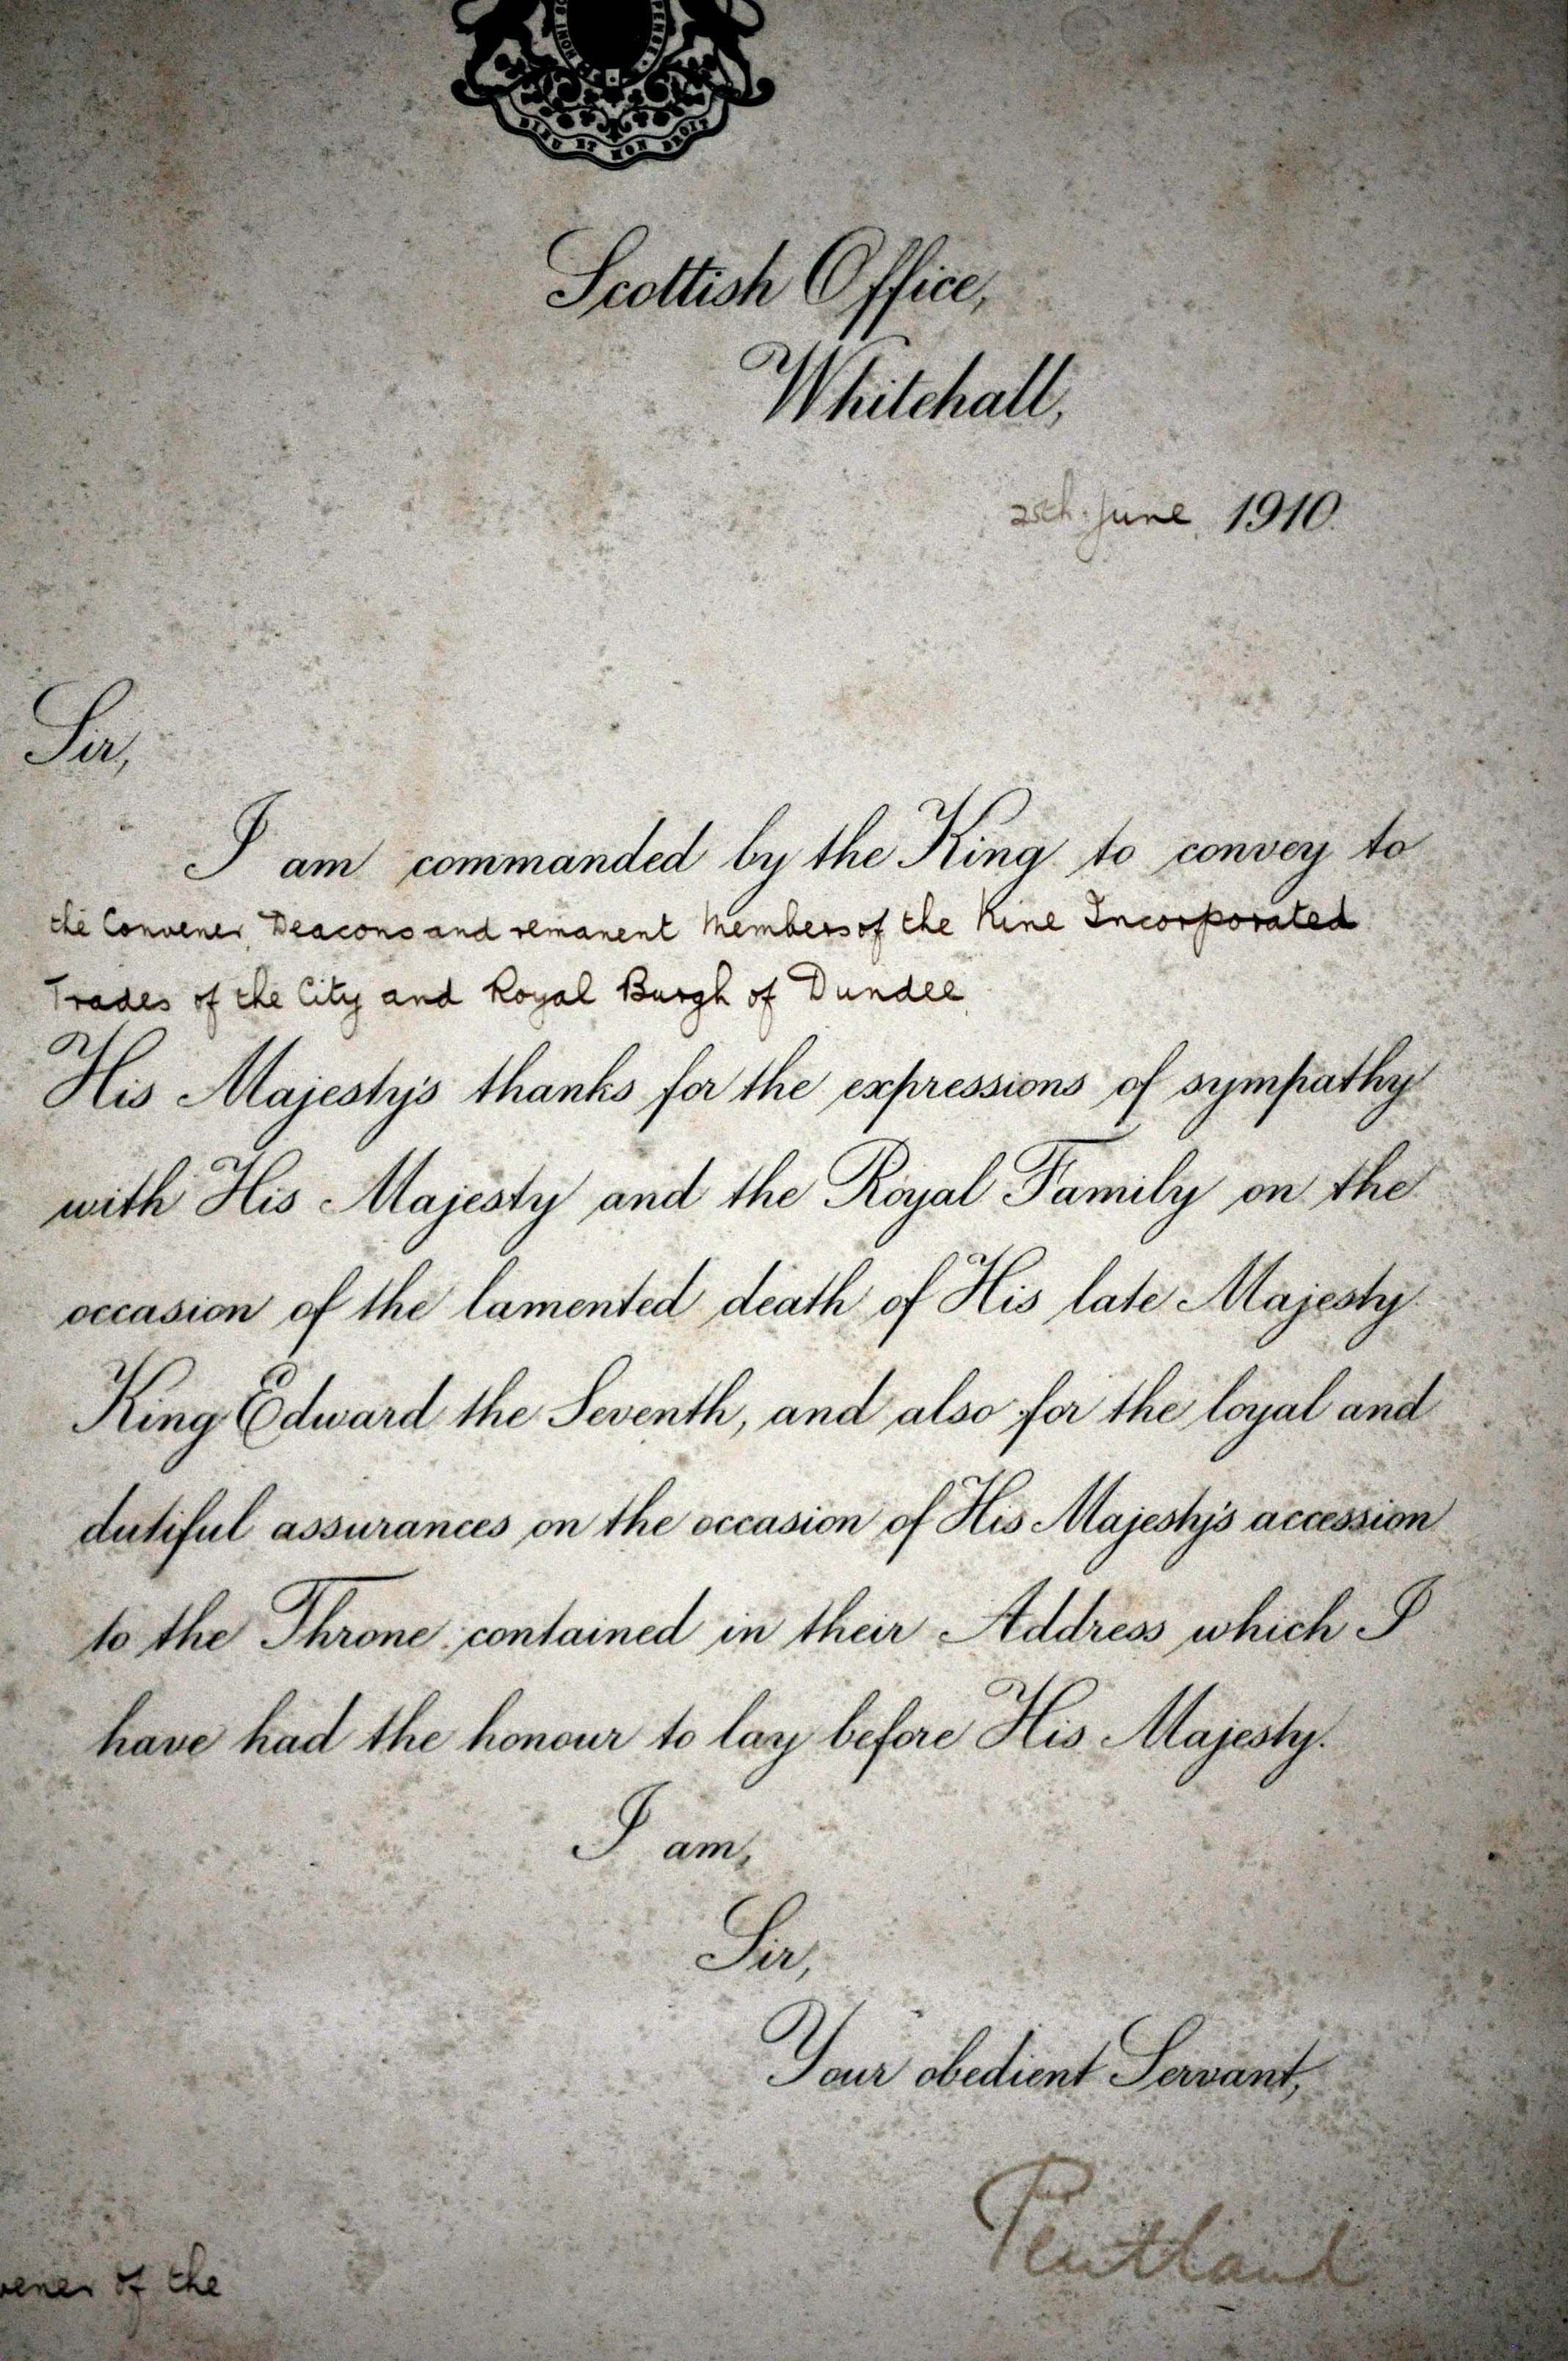 DIEU ET MON DROIT
Scottish Office,
Whitehall,
25th June 1910.
Sir,
I am commanded by the King to convey to
the Convener, Deacons and remanent Members of the Nine Incorporated
Trades of the City and Royal Burgh of Dundee,
His Majesty's thanks for the expressions of sympathy
with His Majesty and the Royal Family on the
occasion of the lamented death of His late Majesty
King Edward the Seventh, and also for the loyal and
dutiful assurances on the occasion of His Majesty's accession
to the Throne contained in their Address which I
have had the honour to lay before His Majesty.
I am,
Sir,
Your obedient Servant,
Pentland
vener of the